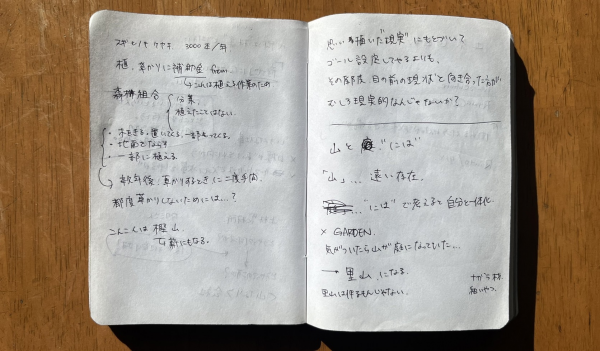 スギ ヒノキ ケヤキ 3000本/年
植、草かりに補助金 from.
これは植える作業のため
森林組合
分業.
植えたことはない.
・木をきる. 置いてくる. 一部もってくる.
・地面をならす
・一部に植える.
数年後. 草かりするときに二度手間.
都度 草かりしないためには…?
こんこんは 樫山.
薪にもなる.
思い描いた"現実"にもとづいて
ゴール設定してやるよりも、
その都度、目の前の現状と向き合った方が
むしろ現実的なんじゃないか?
山と "には"
「山」… 遠い存在.
"には"で考えると自分と一体化.
× GARDEN.
気がついたら山が庭になっていた…
→ 里山 になる.
里山は作るもんじゃない.
細いやつ.